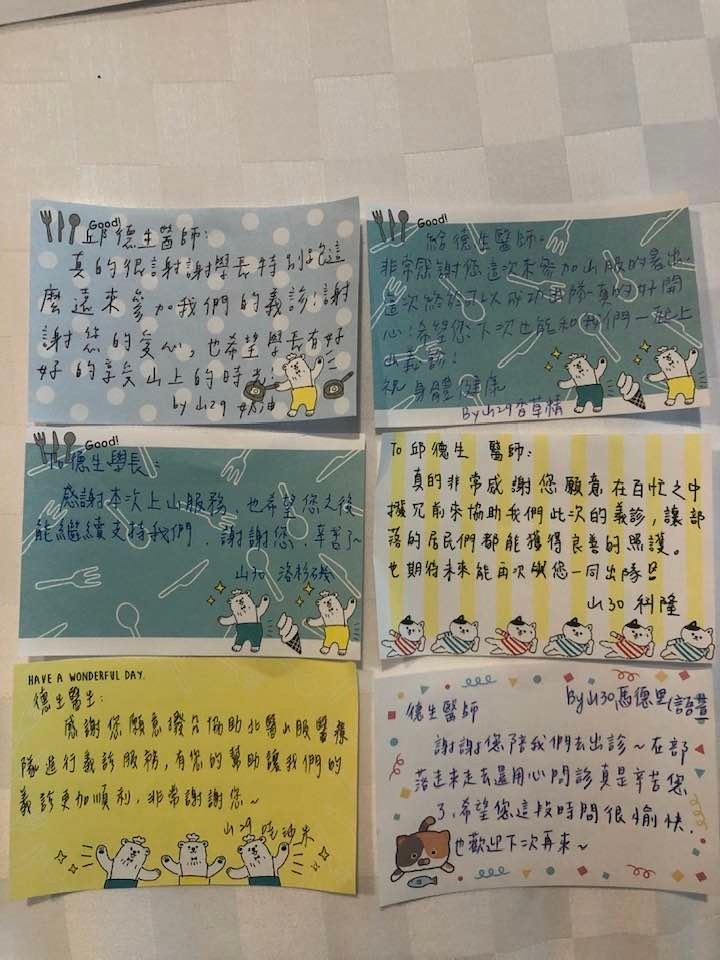 Good!
邱德生醫師:
真的很謝謝學長特別跑這
麼遠來參加我們的義診!謝
謝您的愛心,也希望學長有好
好的享受山上的時光!
by 山29 奶油
Good!
給德生醫師:
非常感謝您這次來參加山服的暑出,
這次終於可以成功出隊真的好開
心!希望您下次也能和我們一起上
山義診!
祝 身體健康
By山29香草精
Good!
To 德生學長:
感謝本次上山服務,也希望您之後
能繼續支持我們,謝謝您,辛苦了~
山30 洛杉磯
To 邱德生 醫師:
真的非常感謝您願意在百忙之中
撥冗前來協助我們此次的義診,讓部
落的居民們都能獲得良善的照護。
也期待未來能再次與您一同出隊
山30 科隆
HAVE A WONDERFUL DAY.
德生醫生:
感謝您願意撥冗協助北醫山服醫療
隊進行義診服務,有您的幫助讓我們的
義診更加順利,非常謝謝您~
山29
德生醫師
By山30馬德里(語萱
謝謝您陪我們去出診~在部
落走來走去還用心問診真是辛苦您
了,希望您這段時間很愉快,
也歡迎下次再來~